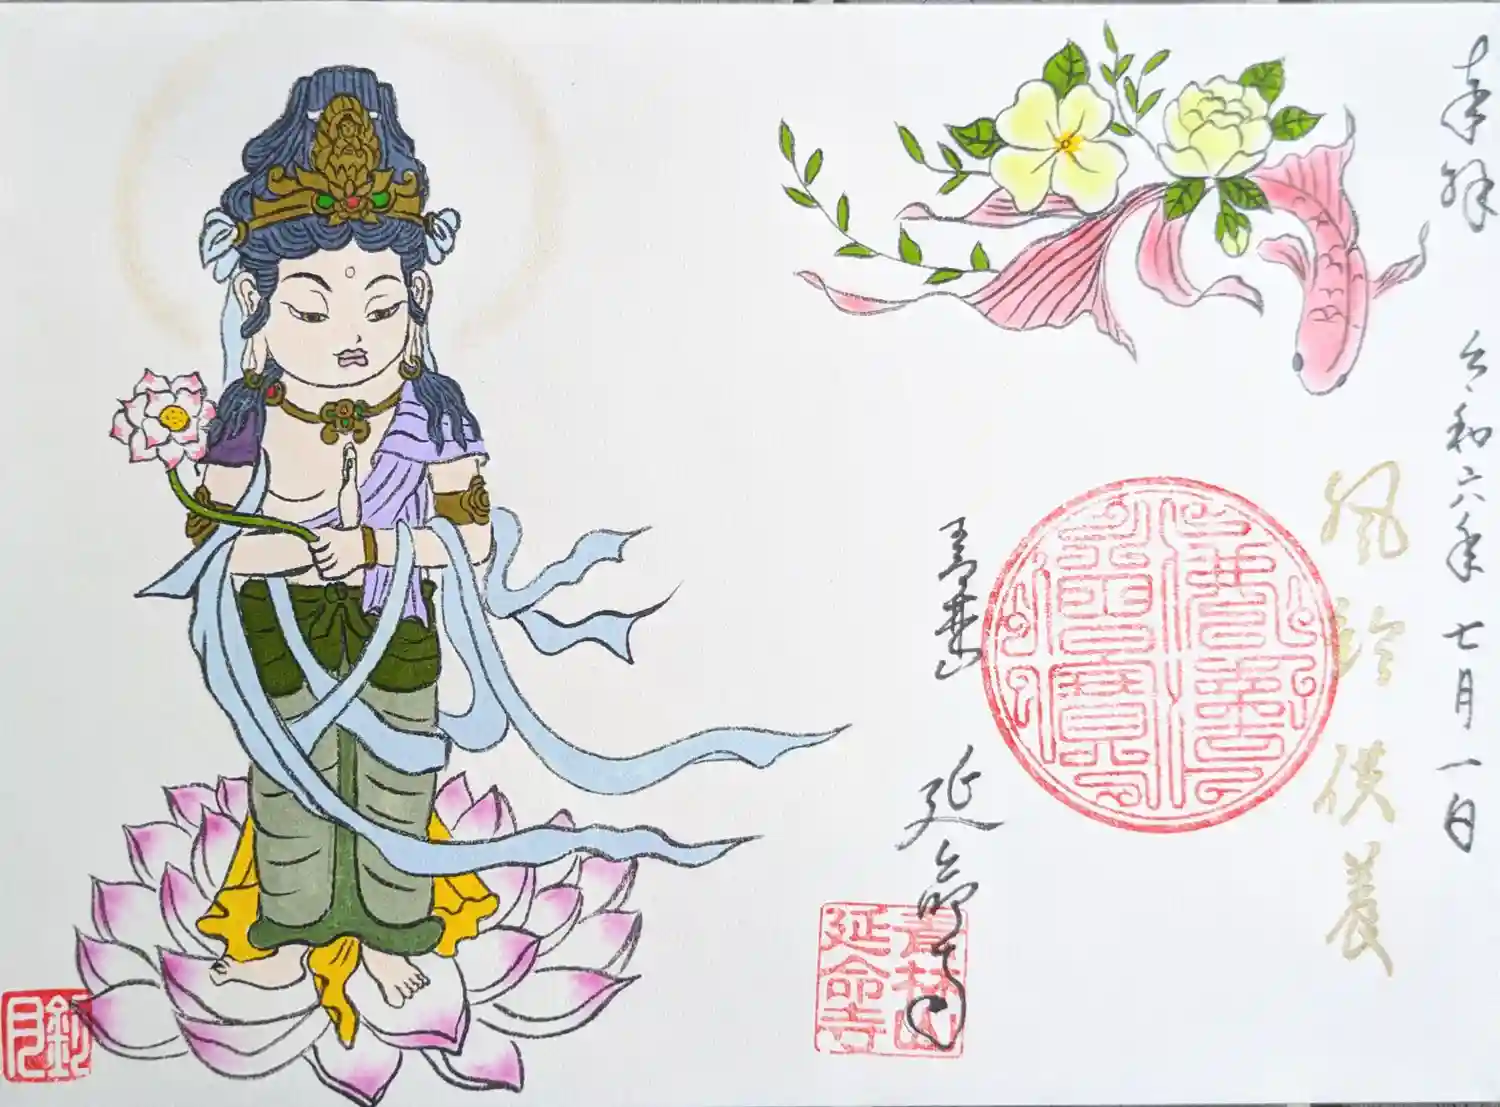 奉拝 令和六年七月一日
風鈴供養
佛法僧寳
青林山 延命寺
青林山
延命寺
釼月